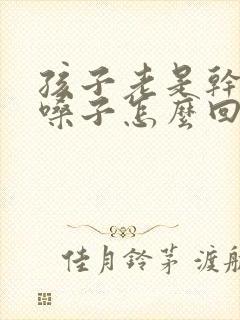 孩子老是幹
嗓子怎麼回
佳月鈴茅 渡航